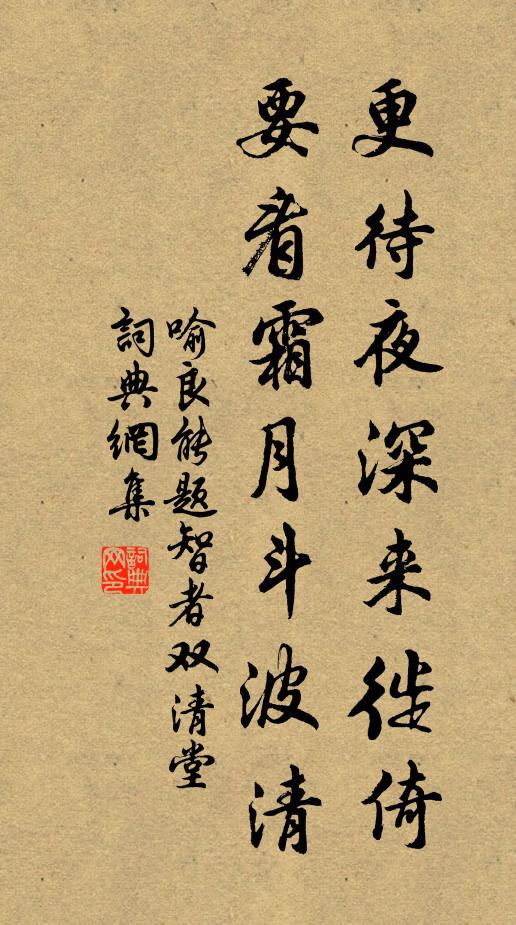 更待夜深来徙倚
要看霜月斗波清
喻良能题智者双清堂
詞典網集
詞典网印